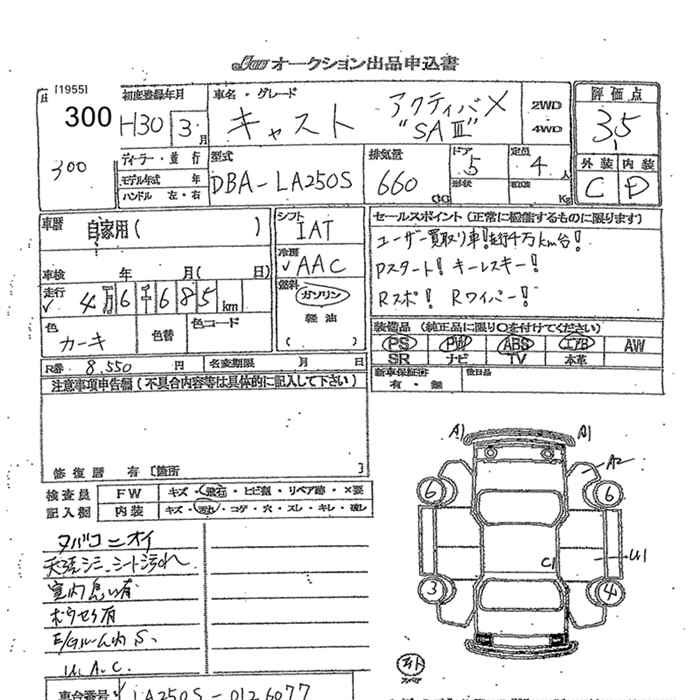 オークション出品申込書
[1955]
300
300
初度登録年月
H30 3月
車名・グレード
キャスト アクティバX
"SAⅢ"
2WD
4WD
評価点
3.5
外装 内装
C D
ディーラー・並行
モデル年式 年
ハンドル 左・右
型式
DBA-LA250S
排気量
660
CC
ドア
5
形状
定員
4人
Kg
車歴
自家用( )
車検 年 月( 日)
走行
✓ 4万6千685km
シフト
IAT
冷房
✓AAC
燃料
ガソリン
軽油
( )
色
カーキ
色替
色コード
R券 8,550 円
名変期限 月 日
セールスポイント(正常に機能するものに限ります)
ユーザー買取り車!走行4万km台!
Pスタート! キーレスキー!
Rスポ! Rワイパー!
装備品(純正品に限り○を付けてください)
PS PW ABS エアB AW
SR ナビ TV 本革
新車保証書
有・無
後日品
注意事項申告欄(不具合内容等は具体的に記入して下さい)
修復歴 有〔箇所 〕
検査員
記入欄
FW キズ・飛石・ヒビ割・リペア跡・×要
内装 キズ・汚れ・コゲ・穴・スレ・キレ・濡し
タバコニオイ
天張シミ、シート汚れ
室内臭い有
ボウセイ有
E/Gルーム内 S、
U.A.C.
車台番号 LA250S-0126077
A1 A1
A2
6 6
C1
U1
3 4